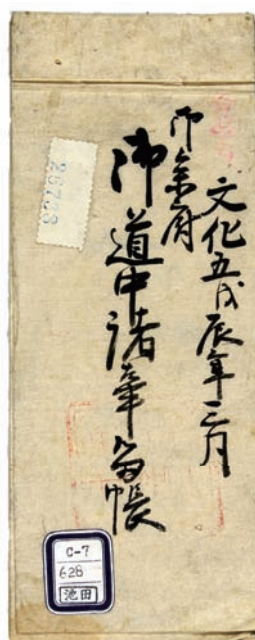 文化五戊辰年三月
御参府
御道中諸事留帳
26733
C-7
628
池田